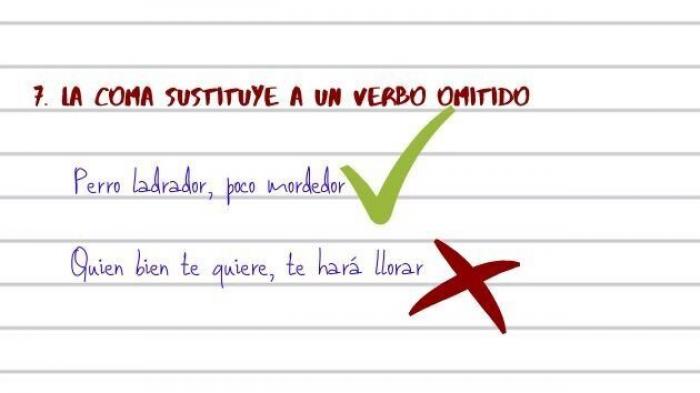 7. LA COMA SUSTITUYE A UN VERBO OMITIDO
Perro ladrador, poco mordedor
Quien bien te quiere, te hará llorar